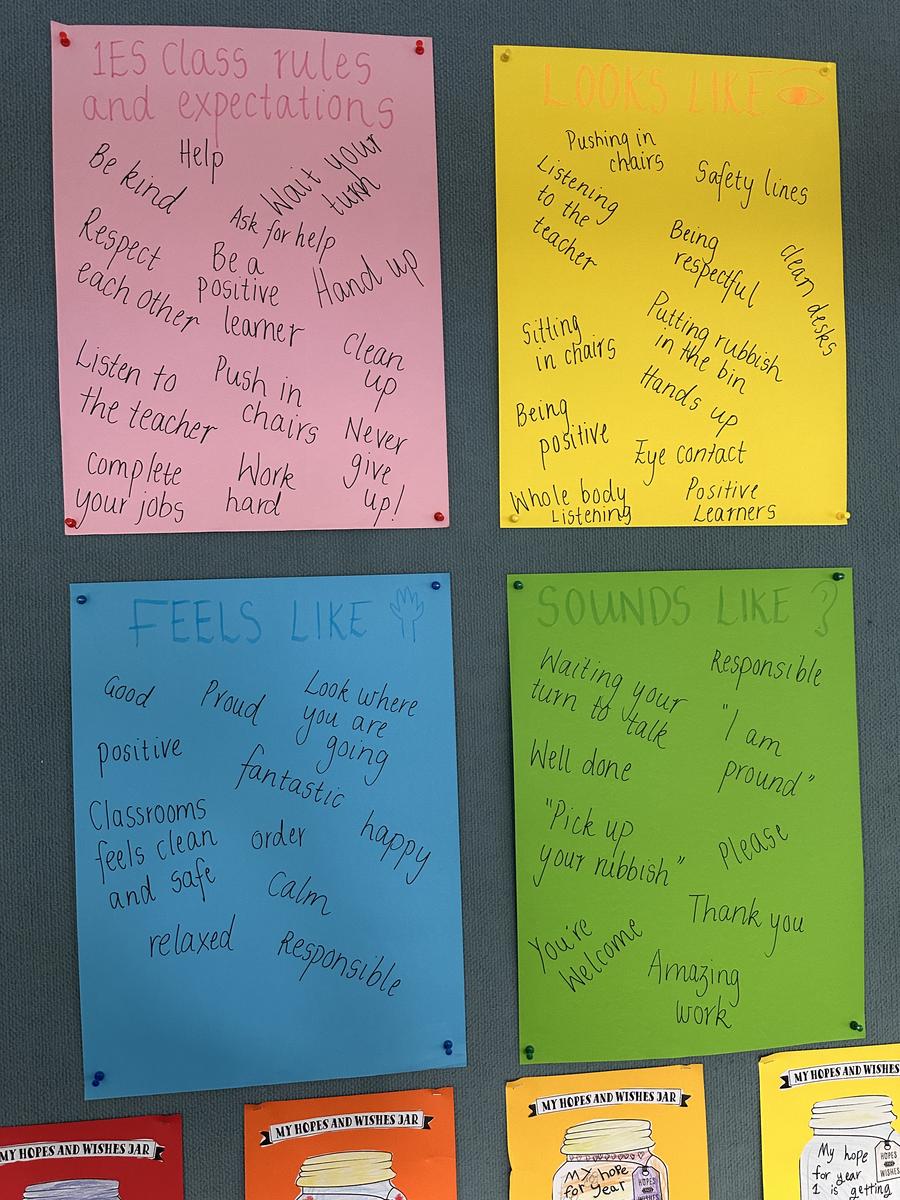 1ES Class rules
and expectations
Help
Be kind
Wait your
turn
Ask for help
Respect
each other
Be a
positive
learner
Hand up
Clean
up
Listen to
the teacher
Push in
chairs
Never
give
up!
Complete
your jobs
Work
hard
LOOKS LIKE
Pushing in
chairs
Safety lines
Listening
to the
teacher
Being
respectful
clean desks
Sitting
in chairs
Putting rubbish
in the bin
Hands up
Being
positive
Eye contact
Whole body
Listening
Positive
Learners
FEELS LIKE
Good
Proud
Look where
you are
going
positive
fantastic
Classrooms
feels clean
and safe
order
happy
Calm
relaxed
Responsible
SOUNDS LIKE
Waiting your
turn to talk
Responsible
"I am
pround"
Well done
"Pick up
your rubbish"
Please
Thank you
You're
Welcome
Amazing
work
MY HOPES AND WISHES JAR
MY HOPES AND WISHES JAR
MY HOPES AND WISHES JAR
My hope
for year
HOPES
AND
WISHES
MY HOPES AND WISHES JAR
My hope
for year
1 is getting
HOPES
AND
WISHES